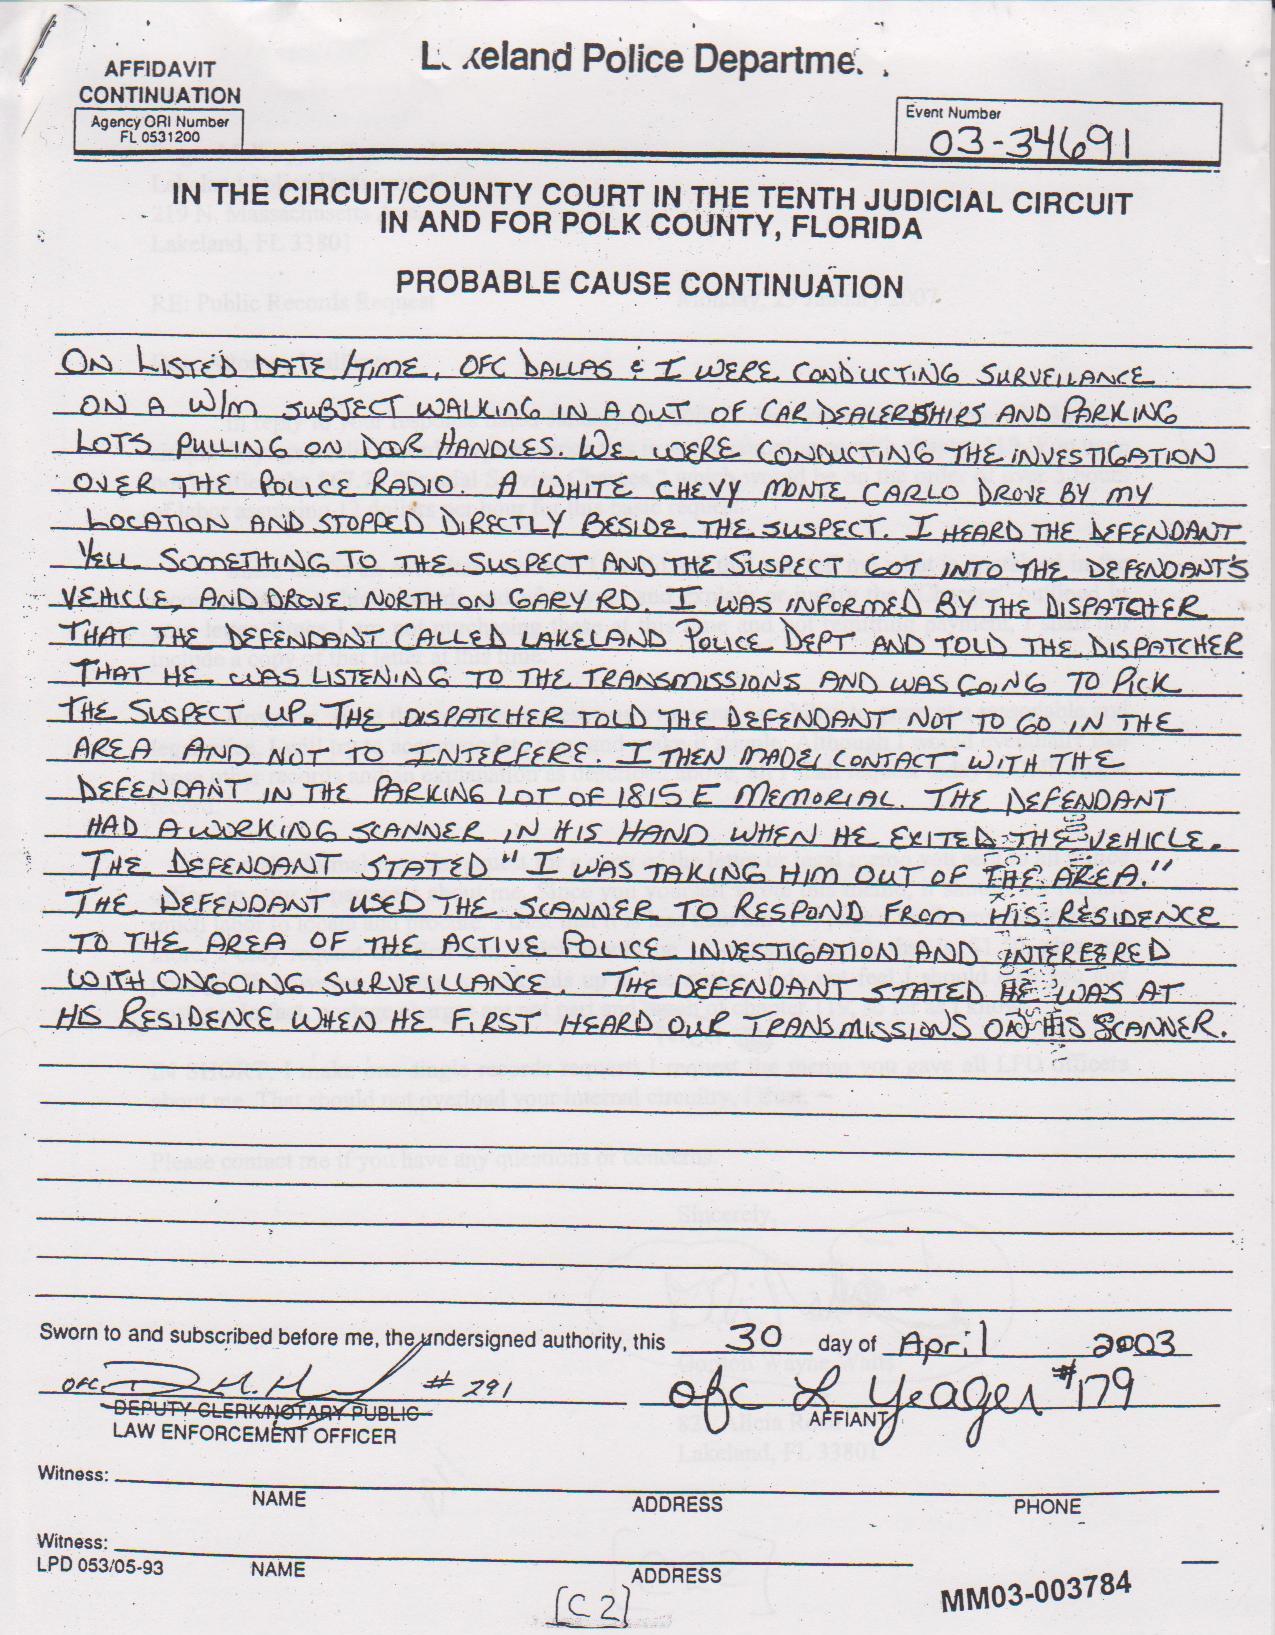 Lakeland Police Department
AFFIDAVIT
CONTINUATION
Agency ORI Number
FL 0531200
Event Number
03-34691
IN THE CIRCUIT/COUNTY COURT IN THE TENTH JUDICIAL CIRCUIT
IN AND FOR POLK COUNTY, FLORIDA
PROBABLE CAUSE CONTINUATION
ON LISTED DATE/TIME, OFC DALLAS & I WERE CONDUCTING SURVEILANCE
ON A W/M SUBJECT WALKING IN A OUT OF CAR DEALERSHIPS AND PARKING
LOTS PULLING ON DOOR HANDLES. WE WERE CONDUCTING THE INVESTIGATION
OVER THE POLICE RADIO. A WHITE CHEVY MONTE CARLO DROVE BY MY
LOCATION AND STOPPED DIRECTLY BESIDE THE SUSPECT. I HEARD THE DEFENDANT
YELL SOMETHING TO THE SUSPECT AND THE SUSPECT GOT INTO THE DEFENDANT'S
VEHICLE, AND DROVE NORTH ON GARY RD. I WAS INFORMED BY THE DISPATCHER
THAT THE DEFENDANT CALLED LAKELAND POLICE DEPT AND TOLD THE DISPATCHER
THAT HE WAS LISTENING TO THE TRANSMISSIONS AND WAS GOING TO PICK
THE SUSPECT UP. THE DISPATCHER TOLD THE DEFENDANT NOT TO GO IN THE
AREA AND NOT TO INTERFERE. I THEN MADE CONTACT WITH THE
DEFENDANT IN THE PARKING LOT OF 1815 E MEMORIAL. THE DEFENDANT
HAD A WORKING SCANNER IN HIS HAND WHEN HE EXITED THE VEHICLE.
THE DEFENDANT STATED "I WAS TAKING HIM OUT OF THE AREA."
THE DEFENDANT USED THE SCANNER TO RESPOND FROM HIS RESIDENCE
TO THE AREA OF THE ACTIVE POLICE INVESTIGATION AND INTEREFERED
WITH ONGOING SURVEILLANCE. THE DEFENDANT STATED HE WAS AT
HIS RESIDENCE WHEN HE FIRST HEARD OUR TRANSMISSIONS ON HIS SCANNER.
Sworn to and subscribed before me, the undersigned authority, this 30 day of April 2003
OFC # 291
ofc L Yeager #179
DEPUTY CLERK/NOTARY PUBLIC
AFFIANT
LAW ENFORCEMENT OFFICER
Witness:
NAME ADDRESS PHONE
Witness:
LPD 053/05-93 NAME ADDRESS
[C 2]
MM03-003784